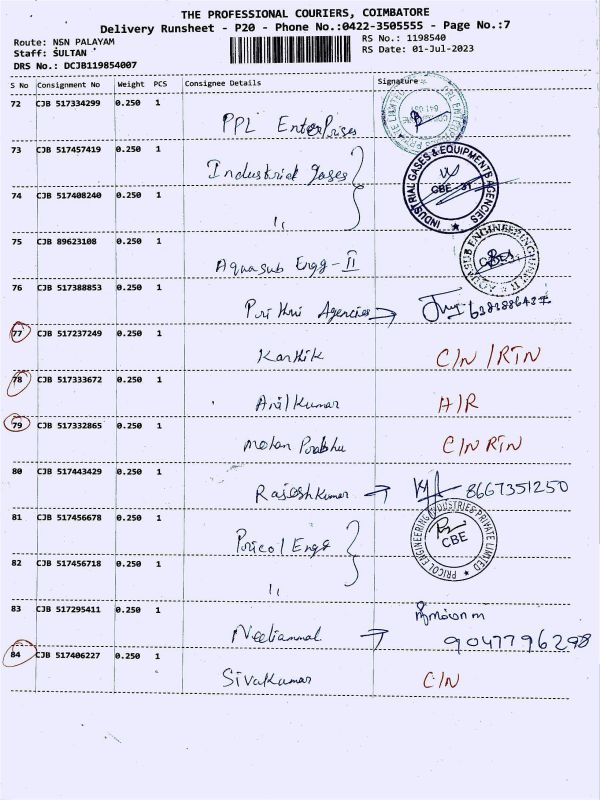 THE PROFESSIONAL COURIERS, COIMBATORE
Delivery Runsheet - P20 - Phone No.:0422-3505555 - Page No.:7
Route: NSN PALAYAM
RS No.: 1198540
Staff: SULTAN
RS Date: 01-Jul-2023
DRS No.: DCJB119854007
S No Consignment No Weight PCS Consignee Details Signature
72 CJB 517334299 0.250 1
PPL Enterprises
73 CJB 517457419 0.250 1
Industrial gases
INDUSTRIAL GASES & EQUIPMENTS AGENCIES
74 CJB 517408240 0.250 1
''
75 CJB 89623108 0.250 1
Aquasub Engg - II
76 CJB 517388853 0.250 1
Agencies
77 CJB 517237249 0.250 1
Karthik C/N /RTN
78 CJB 517333672 0.250 1
Anilkumar A/R
79 CJB 517332865 0.250 1
Mohan Prabhu C/N RTN
80 CJB 517443429 0.250 1
Rajeshkumar 8667351250
81 CJB 517456678 0.250 1
Pricol Engg
PRICOL ENGINEERING INDUSTRIES PRIVATE LIMITED
CBE
82 CJB 517456718 0.250 1
''
83 CJB 517295411 0.250 1
9047796298
84 CJB 517406227 0.250 1
Sivakumar C/N